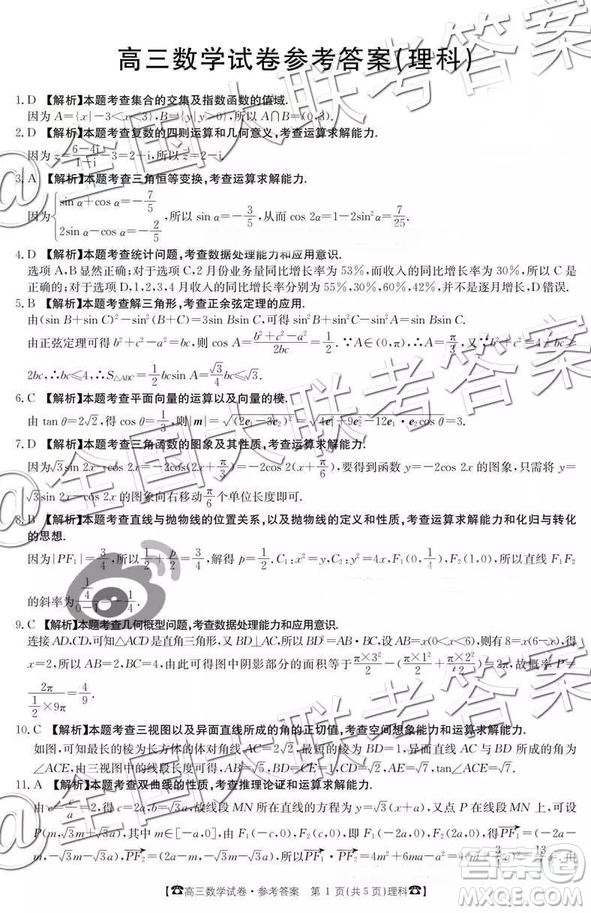 高三数学试卷参考答案(理科)
1. D 【解析】本题考查集合的交集及指数函数的值域.
因为 A={x|-3<x<3},B={y|y>0},所以 A∩B=(0,3).
2. D 【解析】本题考查复数的四则运算和几何意义,考查运算求解能力.
因为 z=(6-4i)/(1+i)-3=2-i,所以 z=2-i.
3. A 【解析】本题考查三角恒等变换,考查运算求解能力.
因为{sin α+cos α=-7/5, 2sin α-cos α=-2/5,所以 sin α=-3/5,从而 cos 2α=1-2sin²α=7/25.
4. D 【解析】本题考查统计问题,考查数据处理能力和应用意识.
选项 A,B 显然正确;对于选项 C,2 月份业务量同比增长率为 53%,而收入的同比增长率为 30%,所以 C 是正确的;对于选项 D,1,2,3,4 月收入的同比增长率分别为 55%,30%,60%,42%,并不是逐月增长,D 错误.
5. B 【解析】本题考查解三角形,考查正余弦定理的应用.
由(sin B+sin C)²-sin²(B+C)=3sin Bsin C,可得 b²+c²-a²=bc.
由正弦定理可得 b²+c²-a²=bc,则 cos A=(b²+c²-a²)/2bc=1/2.∵A∈(0,π),∴A=π/3,
2bc,∴bc=4,∴S△ABC=1/2bcsin A=√3.
6. C 【解析】本题考查平面向量的运算以及向量的模.
由 tan θ=2√2,得 cos θ=1/3,则|m|
7. D 【解析】本题考查三角函数的图象及其性质,考查运算求解能力.
因为√3sin 2x-cos 2x=-2cos(2x+π/3)=-2cos 2(x+π/6),要得到函数 y=-2cos 2x 的图象,只需将 y=
√3sin 2x-cos 2x 的图象向右移动π/6个单位长度即可.
8. B 【解析】本题考查直线与抛物线的位置关系,以及抛物线的定义和性质,考查运算求解能力和化归与转化
的思想.
因为|PF₁|=3/4,所以1/2+p/2=3/4,解得 p=1/2.C₁:x²=y,C₂:y²=4x,F₁(0,1/4),F₂(1,0),所以直线 F₁F₂
的斜率为
9. C 【解析】本题考查几何概型问题,考查数据处理能力和应用意识.
连接 AD,CD,可知△ACD 是直角三角形,又 BD⊥AC,所以 BD²=AB·BC,设 AB=x(0<x<6),则有 8=x(6-x),得
x=2,所以 AB=2,BC=4,由此可得图中阴影部分的面积等于π×3²/2-(π×1²/2+π×2²/2)=2π,故概率 P=
2π/(1/2×9π)=4/9.
10. C 【解析】本题考查三视图以及异面直线所成的角的正切值,考查空间想象能力和运算求解能力.
如图,可知最长的棱为长方体的体对角线 AC=2√2,最短的棱为 BD=1,异面直线 AC 与 BD 所成的角为
∠ACE,由三视图中的线段长度可得,AB=√5,BD=1,CE=1,CD=√2,AE=√7,tan∠ACE=√7.
11. A 【解析】本题考查双曲线的性质,考查推理论证和运算求解能力.
由 e=c/a=2,得 c=2a,b=√3a,故线段 MN 所在直线的方程为 y=√3(x+a),又点 P 在线段 MN 上,可设
P(m,√3m+√3a),其中 m∈[-a,0],由于 F₁(-c,0),即 F₁(-2a,0),F₂(2a,0),得PF₁=(-2a-
m,-√3m-√3a),PF₂=(2a-m,-√3m-√3a),所以PF₁·PF₂=4m²+6ma-a²
高三数学试卷·参考答案 第 1 页(共 5 页)理科
@全国大联考答案